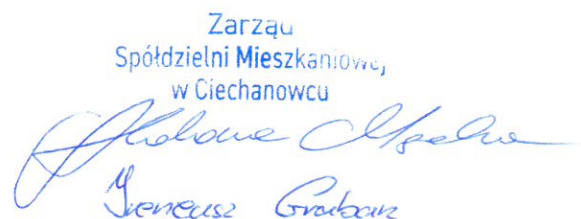 Zarządu
Spółdzielni Mieszkaniowej
w Ciechanowcu
Ireneusz Grabarz